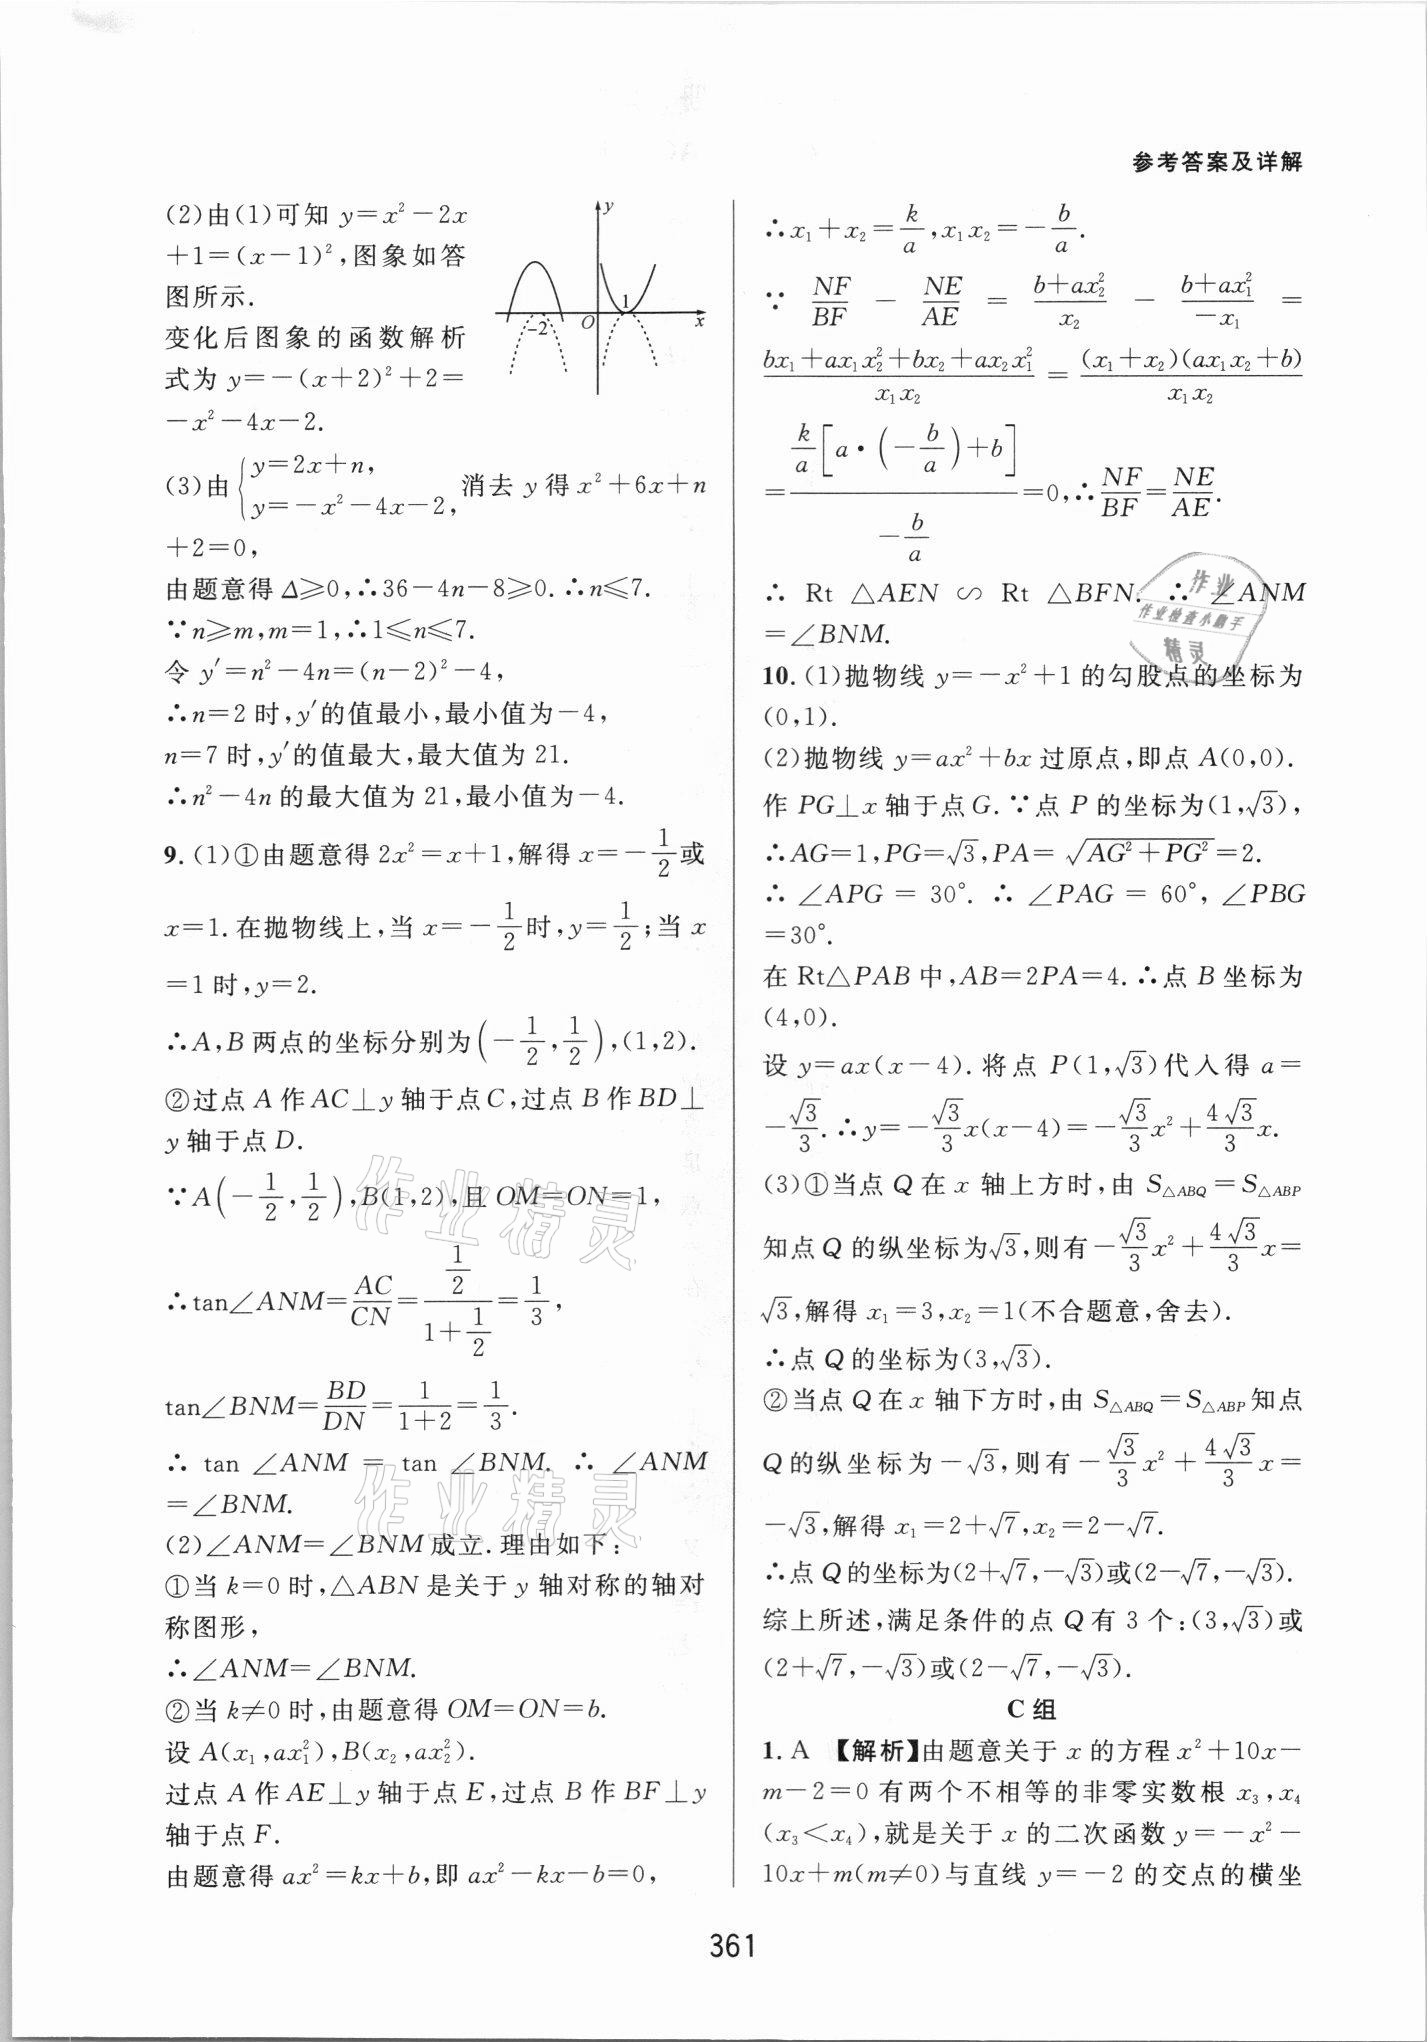 参考答案及详解
(2)由(1)可知 y=x²-2x
+1=(x-1)²,图象如答
图所示.
变化后图象的函数解析
式为 y=-(x+2)²+2=
-x²-4x-2.
y
-2
O
1
x
(3)由{y=2x+n, y=-x²-4x-2, 消去 y 得 x²+6x+n
+2=0,
由题意得 Δ≥0,∴36-4n-8≥0.∴n≤7.
∵n≥m,m=1,∴1≤n≤7.
令 y′=n²-4n=(n-2)²-4,
∴n=2 时,y′的值最小,最小值为-4,
n=7 时,y′的值最大,最大值为 21.
∴n²-4n 的最大值为 21,最小值为-4.
9.(1)①由题意得 2x²=x+1,解得 x=-1/2或
x=1.在抛物线上,当 x=-1/2时,y=1/2;当 x
=1 时,y=2.
∴A,B 两点的坐标分别为(-1/2,1/2),(1,2).
②过点 A 作 AC⊥y 轴于点 C,过点 B 作 BD⊥
y 轴于点 D.
∵A(-1/2,1/2),B(1,2),且 OM=ON=1,
∴tan∠ANM=AC/CN=(1/2)/(1+1/2)=1/3,
tan∠BNM=BD/DN=1/(1+2)=1/3.
∴ tan ∠ANM = tan ∠BNM. ∴ ∠ANM
=∠BNM.
(2)∠ANM=∠BNM 成立.理由如下:
①当 k=0 时,△ABN 是关于 y 轴对称的轴对
称图形,
∴∠ANM=∠BNM.
②当 k≠0 时,由题意得 OM=ON=b.
设 A(x₁,ax₁²),B(x₂,ax₂²).
过点 A 作 AE⊥y 轴于点 E,过点 B 作 BF⊥y
轴于点 F.
由题意得 ax²=kx+b,即 ax²-kx-b=0,
∴x₁+x₂=k/a,x₁x₂=-b/a.
∵ NF/BF - NE/AE = (b+ax₂²)/x₂ - (b+ax₁²)/(-x₁) =
(bx₁+ax₁x₂²+bx₂+ax₂x₁²)/(x₁x₂) = (x₁+x₂)(ax₁x₂+b)/(x₁x₂)
=(k/a[a·(-b/a)+b])/(-b/a)=0,∴NF/BF=NE/AE.
∴ Rt △AEN ∽ Rt △BFN. ∴ ∠ANM
=∠BNM.
10.(1)抛物线 y=-x²+1 的勾股点的坐标为
(0,1).
(2)抛物线 y=ax²+bx 过原点,即点 A(0,0).
作 PG⊥x 轴于点 G.∵点 P 的坐标为(1,√3),
∴AG=1,PG=√3,PA=√(AG²+PG²)=2.
∴ ∠APG = 30°. ∴ ∠PAG = 60°, ∠PBG
=30°.
在 Rt△PAB 中,AB=2PA=4.∴点 B 坐标为
(4,0).
设 y=ax(x-4).将点 P(1,√3)代入得 a=
-√3/3.∴y=-√3/3x(x-4)=-√3/3x²+4√3/3x.
(3)①当点 Q 在 x 轴上方时,由 S△ABQ=S△ABP
知点 Q 的纵坐标为√3,则有-√3/3x²+4√3/3x=
√3,解得 x₁=3,x₂=1(不合题意,舍去).
∴点 Q 的坐标为(3,√3).
②当点 Q 在 x 轴下方时,由 S△ABQ=S△ABP知点
Q 的纵坐标为-√3,则有-√3/3x²+4√3/3x=
-√3,解得 x₁=2+√7,x₂=2-√7.
∴点 Q 的坐标为(2+√7,-√3)或(2-√7,-√3).
综上所述,满足条件的点 Q 有 3 个:(3,√3)或
(2+√7,-√3)或(2-√7,-√3).
C 组
1. A 【解析】由题意关于 x 的方程 x²+10x-
m-2=0 有两个不相等的非零实数根 x₃,x₄
(x₃<x₄),就是关于 x 的二次函数 y=-x²-
10x+m(m≠0)与直线 y=-2 的交点的横坐
361
作业
作业检查小助手
精灵
作业精灵
作业精灵